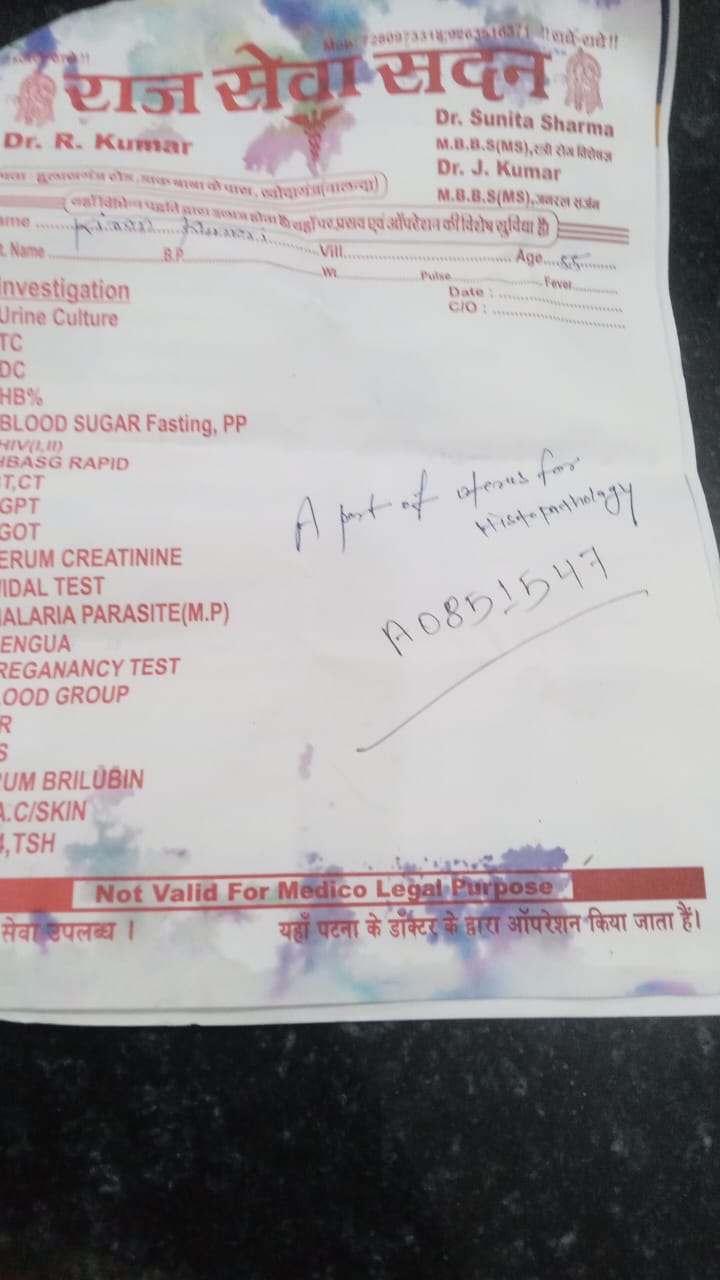 Mob: 7280973318, 9263516371 !! राधे-राधे!!
राज सेवा सदन
Dr. R. Kumar
Dr. Sunita Sharma
M.B.B.S(MS), स्त्री रोग विशेषज्ञ
Dr. J. Kumar
M.B.B.S(MS), जनरल सर्जन
पता : हुलासगंज रोड, डाक बाबा के पास, खोदागंज(नालन्दा)
यहाँ विभिन्न पद्धति द्वारा इलाज होता है। यहाँ पर प्रसव एवं ऑपरेशन की विशेष सुविधा है।
ame ........ Vill........ Age....55........
t. Name ........ B.P ........ Wt. ........ Pulse........ Fever........
Date : ........
C/O : ........
Investigation
Urine Culture
TC
DC
HB%
BLOOD SUGAR Fasting, PP
HIV(I,II)
HBASG RAPID
T,CT
GPT
GOT
ERUM CREATININE
IDAL TEST
ALARIA PARASITE(M.P)
ENGUA
REGANANCY TEST
OOD GROUP
R
S
UM BRILUBIN
A.C/SKIN
,TSH
A part of uterus for
Histopathology
A0851547
Not Valid For Medico Legal Purpose
सेवा उपलब्ध ।
यहाँ पटना के डॉक्टर के द्वारा ऑपरेशन किया जाता हैं।